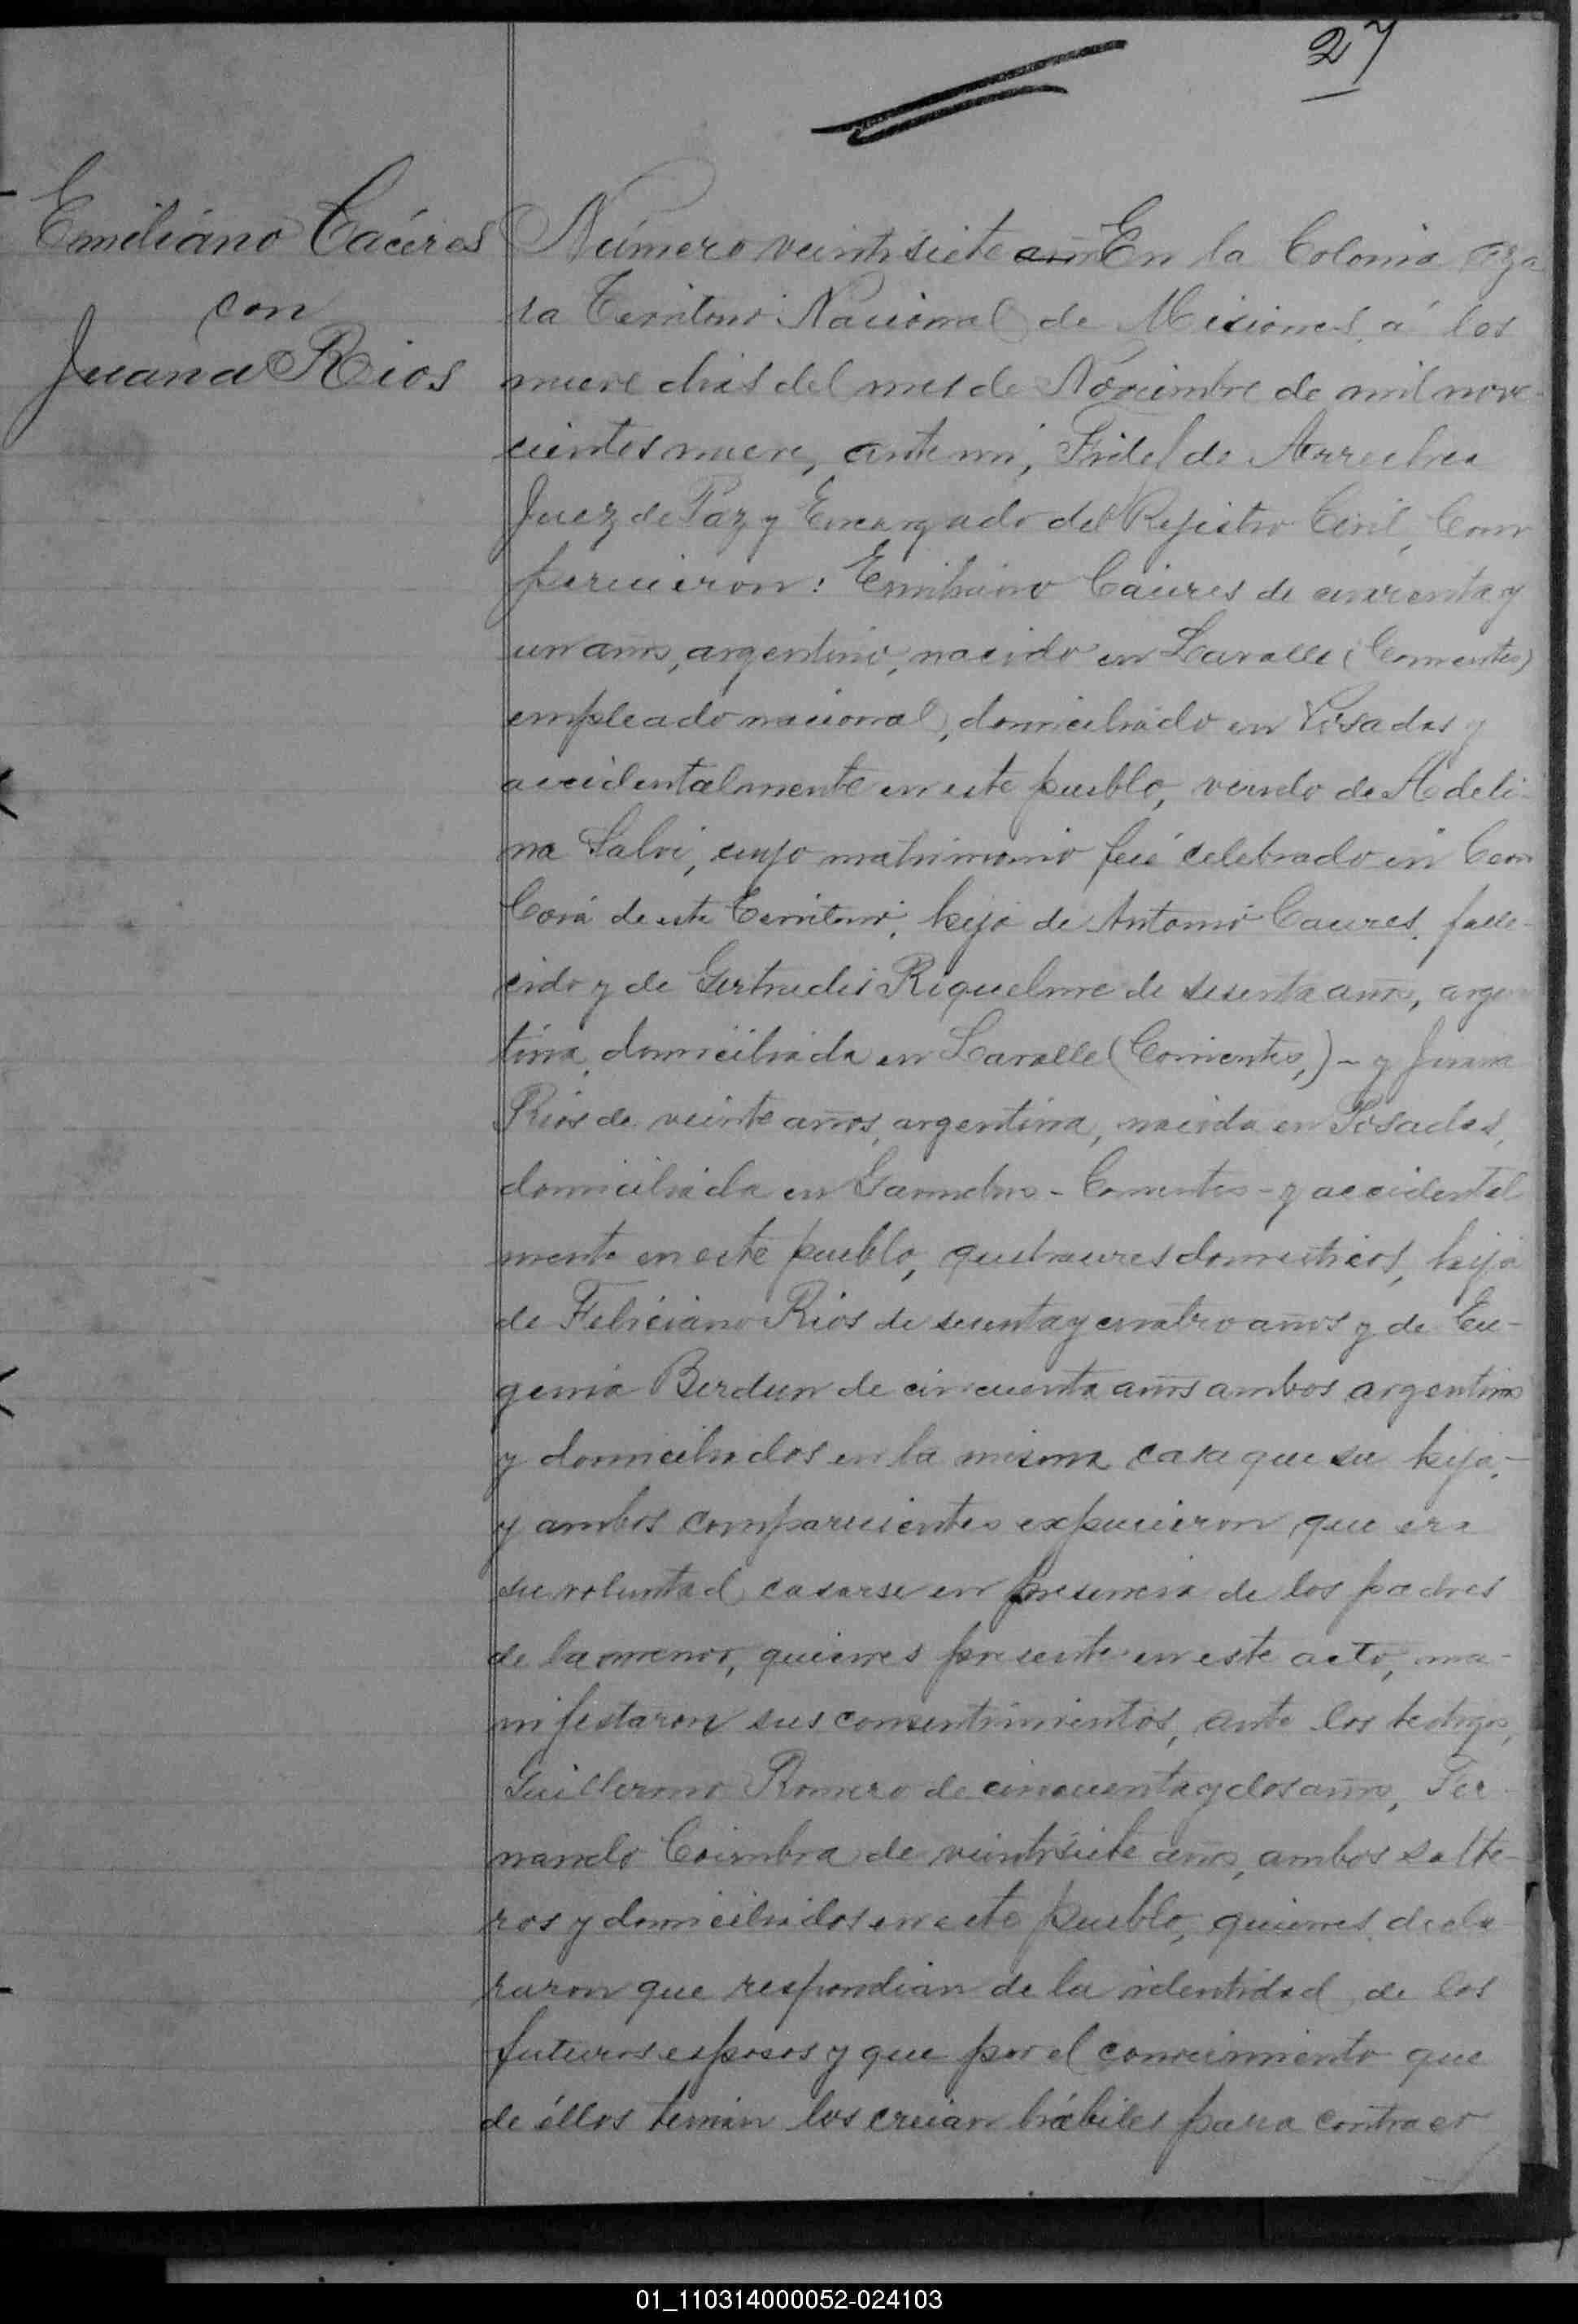 27
Emiliano Cacéres
con
Juana Rios
Número veintisiete En la Colonia Aza
ra Territorio Nacional de Misiones, á los
nueve dias del mes de Noviembre de mil nove-
cientos nueve, ante mi, Fidel de Arrechea
Juez de Paz y Encargado del Rejistro Civil, Com
parecieron: Emiliano Caceres de cuarenta y
un años, argentino, nacido en Lavalle (Corrientes)
empleado nacional, domiciliado en Posadas y
accidentalmente en este pueblo, viudo de Adeli-
na Salvi, cuyo matrimonio fué celebrado en Cerro
Corá de este Territorio, hijo de Antonio Caceres, falle-
cido y de Gertrudis Riquelme de sesenta años, argen
tina, domiciliada en Lavalle (Corrientes,) - y Juana
Rios de veinte años, argentina, nacida en Posadas,
domiciliada en - Corrientes - y accidental
mente en este pueblo, quehaceres domesticos, hija
de Feliciano Rios de sesenta y cuatro años y de Eu-
genia Berdun de cincuenta años ambos argentinos
y domiciliados en la misma casa que su hija,-
y ambos comparecientes expucieron que era
su voluntad casarse en presencia de los padres
de la menor, quienes presente en este acto, ma-
nifestaron sus consentimientos, ante los testigos,
Guillermo Romero de cincuenta y dos años, Fer-
nando Coimbra de veintisiete años, ambos solte-
ros y domiciliados en este pueblo, quienes decla-
raron que respondian de la identidad de los
futuros esposos y que por el conocimiento que
de éllos tenian los creian hábiles para contraer
01_110314000052-024103